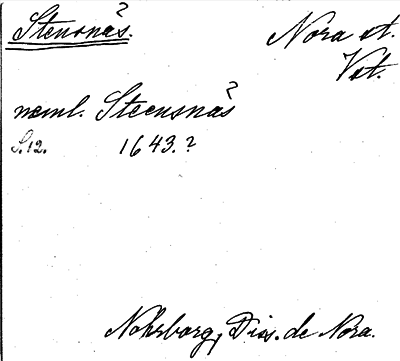 Stensnäs?
Nora st.
Vst.
näml. Steensnäs?
S. 12. 1643.?
Nohrborg, Diss. de Nora.